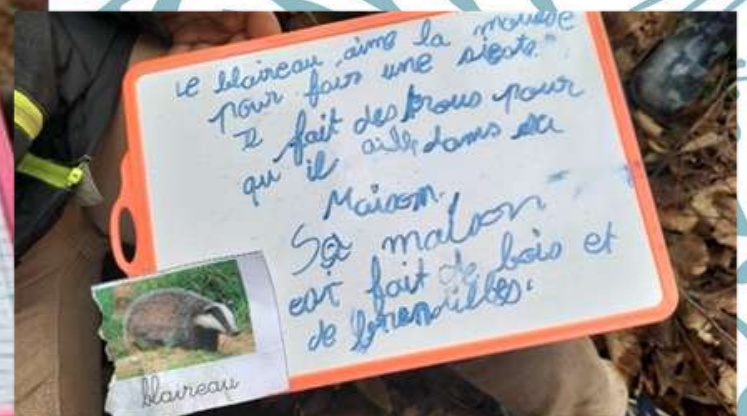 Le blaireau, aime la mousse
pour fair une sieste."
Il fait des trous pour
qu'il aille dans sa
Maison.
Sa maison
est fait de bois et
de brendilles.
blaireau